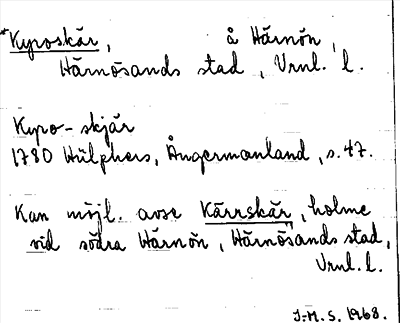 *Kyposkär, å Härnön,
Härnösands stad, Vrnl. l.
Kypo-skjär
1780 Hülphers, Ångermanland, s. 47.
Kan möjl. avse Kärrskär, holme
vid södra Härnön, Härnösands stad,
Vrnl. l.
J-M. S. 1968.